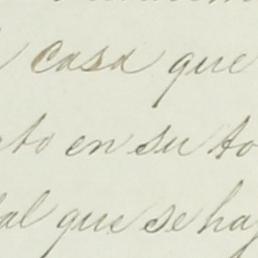 casa que
en su to
al que se ha